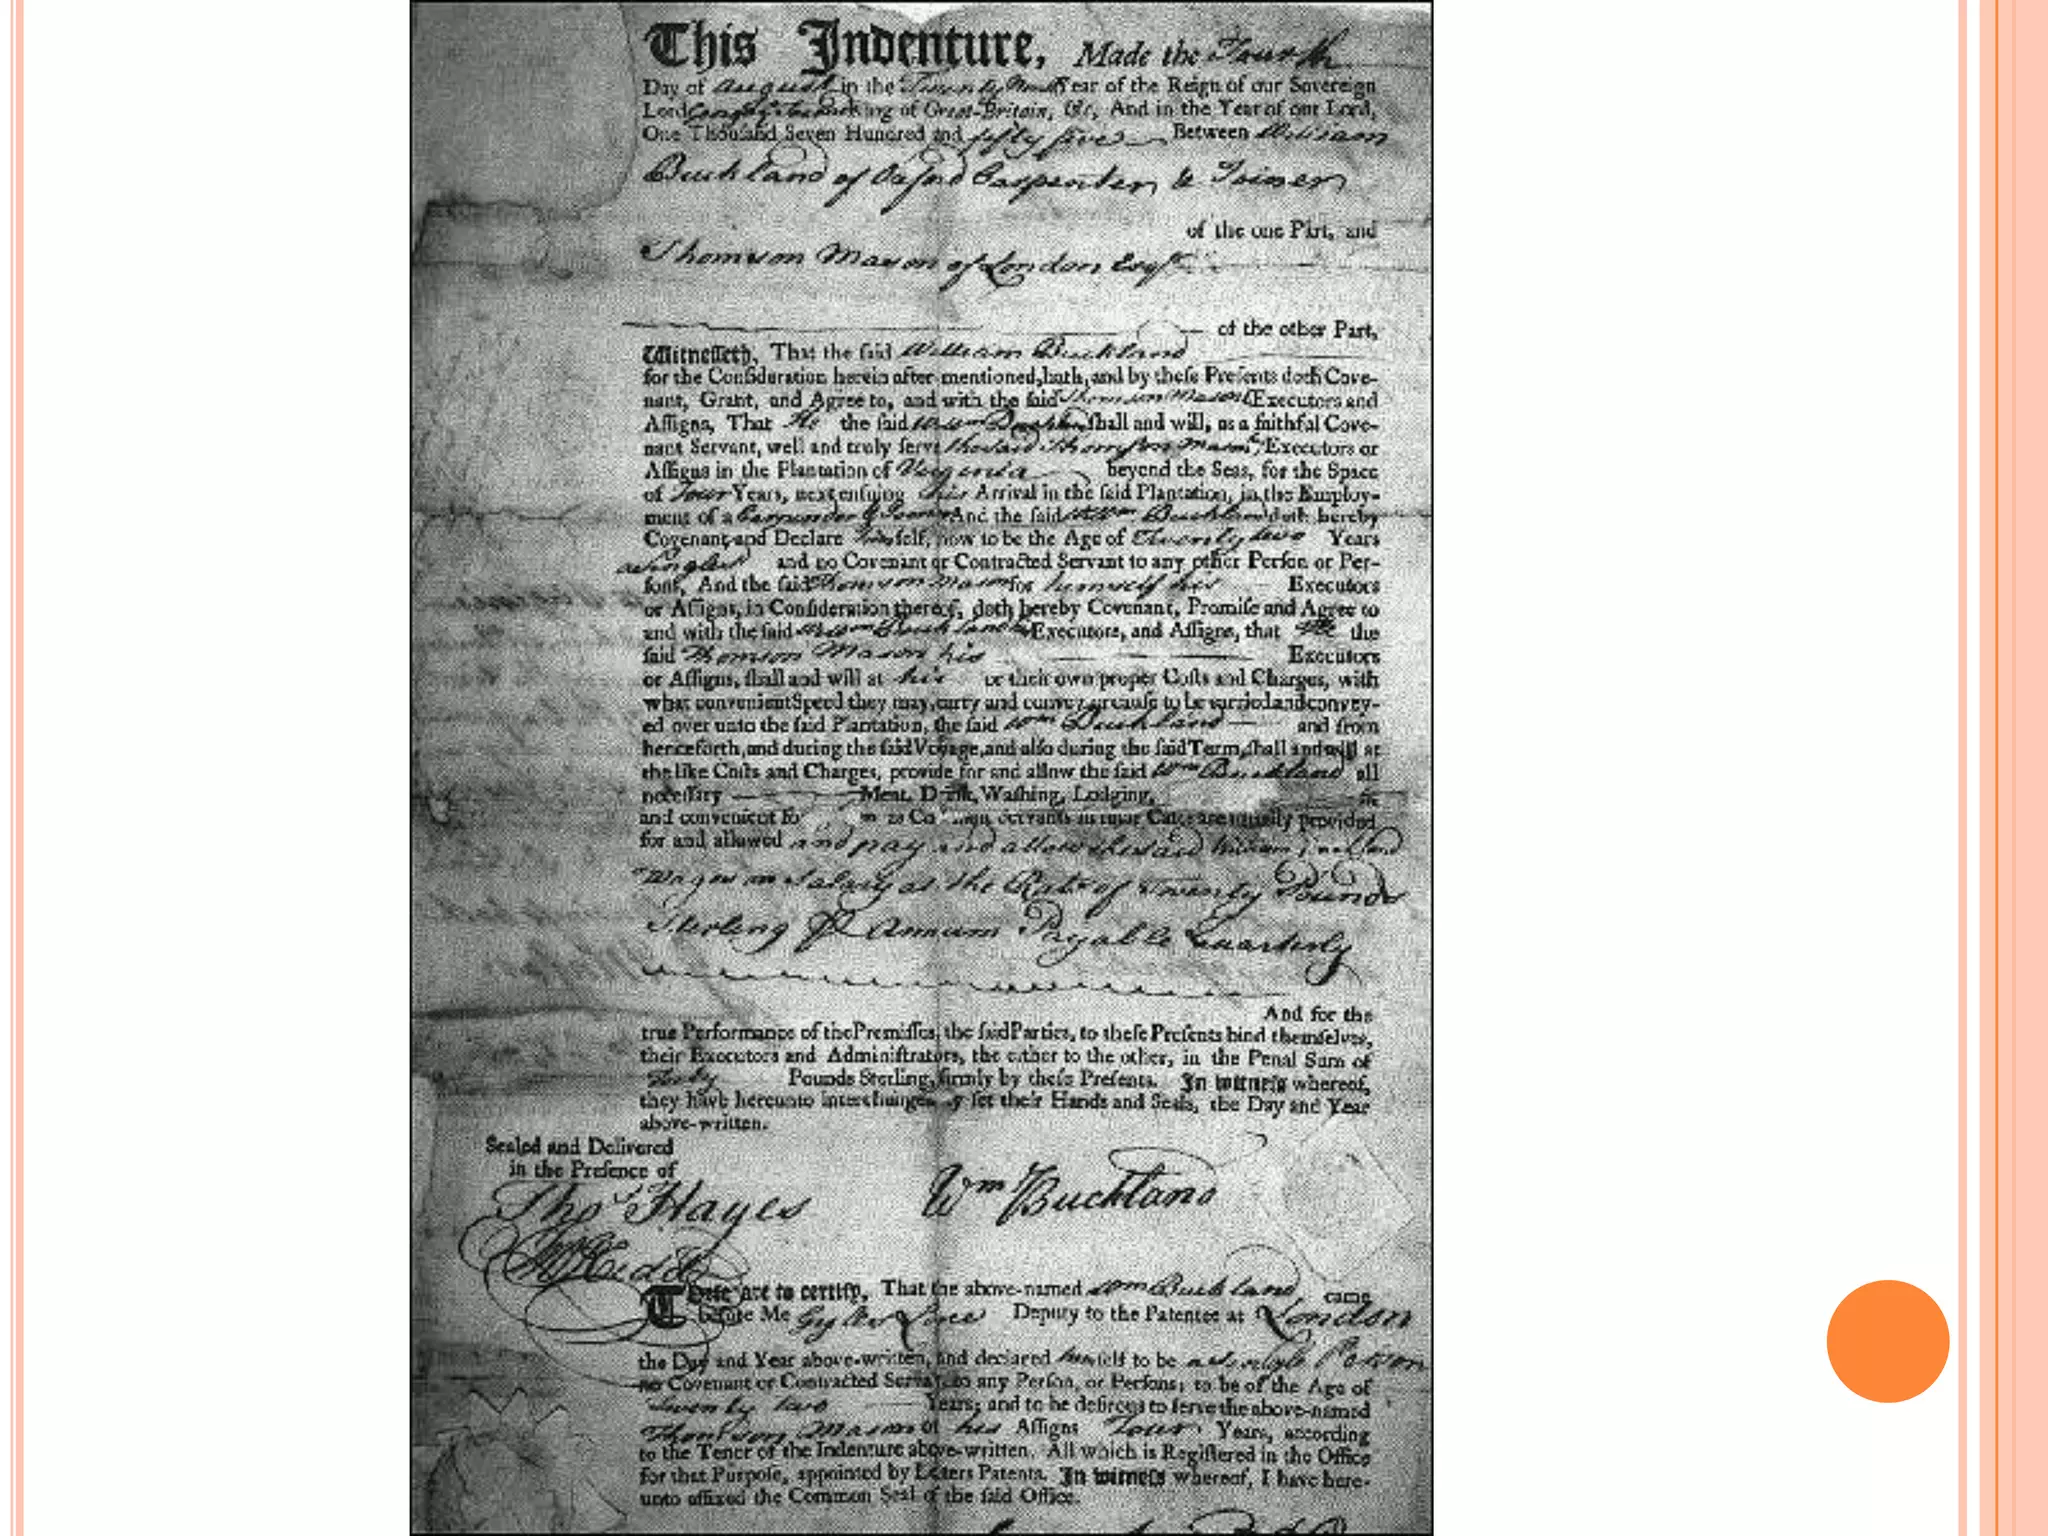 This Indenture, Made the Fourth
Day of August in the Twenty Year of the Reign of our Sovereign
Lord George King of Great-Britain, &c, And in the Year of our Lord,
One Thousand Seven Hundred and fifty five Between William
Buckland of Oxford Carpenter & Joiner
of the one Part, and
Thomson Mason of London Esqr
of the other Part,
Witneſſeth, That the ſaid William Buckland
for the Conſideration herein after mentioned, hath, and by theſe Preſents doth Cove-
nant, Grant, and Agree to, and with the ſaid Thomson Mason Executors and
Aſſigns, That He the ſaid Wm Buckland ſhall and will, as a faithful Cove-
nant Servant, well and truly ſerve the said Thomson Mason Executors or
Aſſigns in the Plantation of Virginia beyond the Seas, for the Space
of Four Years, next enſuing his Arrival in the ſaid Plantation, in the Employ-
ment of a Carpenter & Joiner And the ſaid Wm Buckland doth hereby
Covenant and Declare himſelf, now to be the Age of Twenty two Years
a Single and no Covenant or Contracted Servant to any other Perſon or Per-
ſons, And the ſaid Thomson Mason for himself his Executors
or Aſſigns, in Conſideration thereof, doth hereby Covenant, Promiſe and Agree to
and with the ſaid Wm Buckland his Executors, and Aſſigns, that He the
ſaid Thomson Mason his Executors
or Aſſigns, ſhall and will at his or their own proper Coſts and Charges, with
what convenient Speed they may, carry and convey or cauſe to be carried and convey-
ed over unto the ſaid Plantation, the ſaid Wm Buckland and from
henceforth, and during the ſaid Voyage, and alſo during the ſaid Term, ſhall and will at
the like Coſts and Charges, provide for and allow the ſaid Wm Buckland all
neceſſary Meat, Drink, Waſhing, Lodging,
and convenient for as Servants in ſuch Caſes are uſually provided
for and allowed and pay and allow the said William Buckland
Wages or Salary at the Rate of Twenty Pounds
Sterling Pr Annum Payable Quarterly
And for the
true Performance of the Premiſſes, the ſaid Parties, to theſe Preſents bind themſelves,
their Executors and Adminiſtrators, the either to the other, in the Penal Sum of
Forty Pounds Sterling, firmly by theſe Preſents. In witneſs whereof,
they have hereunto interchangeably ſet their Hands and Seals, the Day and Year
above-written.
Sealed and Delivered
in the Preſence of
Thos Hayes
Wm Buckland
Theſe are to certify, That the above-named Wm Buckland came
before Me Deputy to the Patentee at London
the Day and Year above-written, and declared himſelf to be a Single Person
no Covenant or Contracted Servant to any Perſon, or Perſons; to be of the Age of
Twenty two Years; and to be deſirous to ſerve the above-named
Thomson Mason or his Aſſigns Four Years, according
to the Tenor of the Indenture above-written. All which is Regiſtered in the Office
for that Purpoſe, appointed by Letters Patents. In witneſs whereof, I have here-
unto affixed the Common Seal of the ſaid Office.